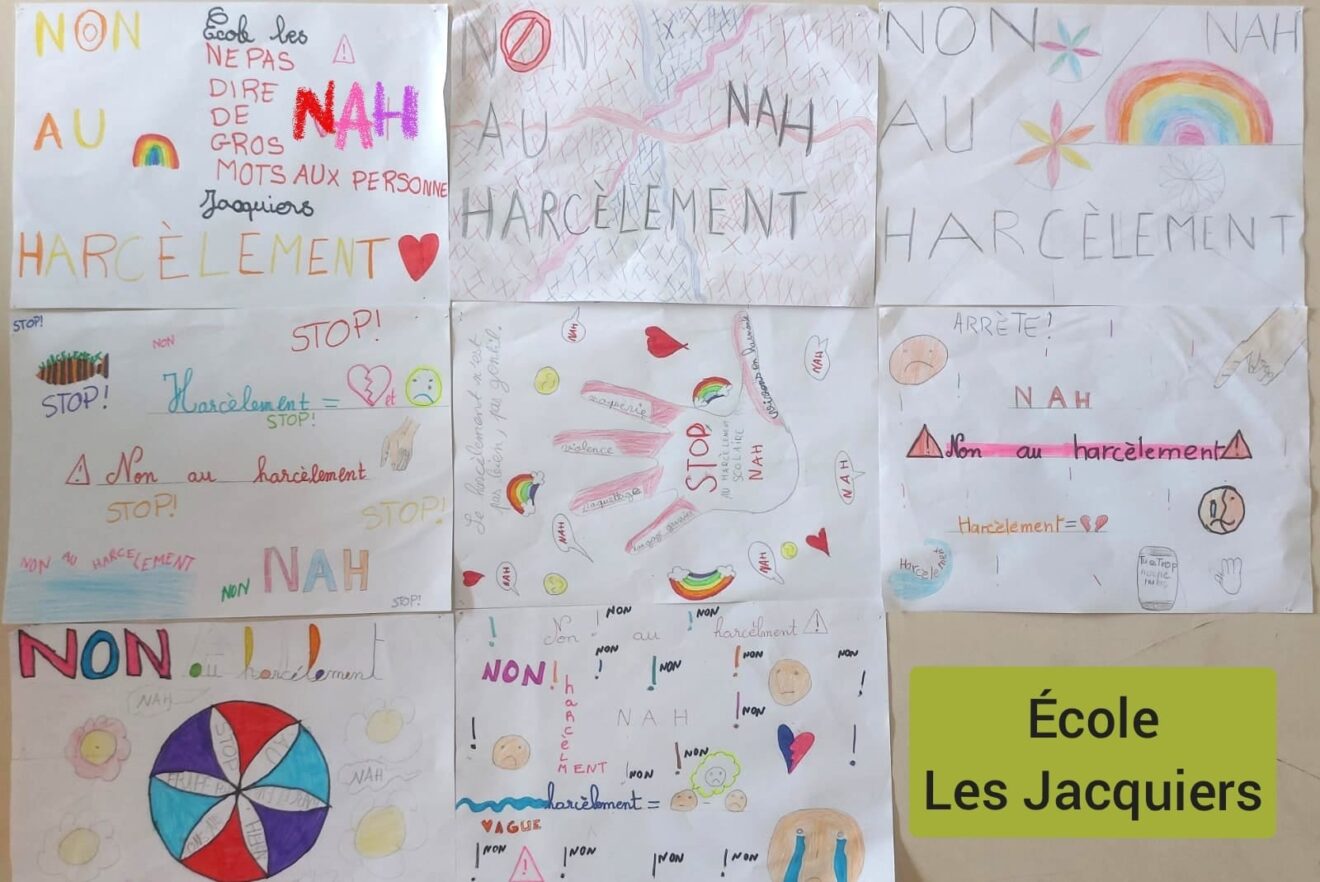 NON
AU
École les
NE PAS
DIRE
DE
GROS
MOTS AUX PERSONNE
Jacquiers
NAH
HARCÈLEMENT
NON
AU
NAH
HARCÈLEMENT
NON
NAH
AU
HARCÈLEMENT
STOP!
NON
STOP!
STOP!
Harcèlement = et
STOP!
Non au harcèlement
STOP!
STOP!
NON AU HARCELEMENT
NON
NAH
STOP!
Le harcèlement n'est
pas bien, pas gentil.
NAH
moquerie
violence
STOP
AU HARCELEMENT
SCOLAIRE
NAH
NAH
NAH
NAH
NAH
NAH
ARRÈTE!
NAH
Non au harcèlement
Harcèlement=
Harcèlement
NON au harcélement
NAH
STOP
AU
NAH
NAH
Non au harcélment
NON
NON
NON
NON!
harcèlMENT
NON
NON
NON
NAH
NON
NON
NON
harcèlement =
VAGUE
NON
NON
NON
NON
École
Les Jacquiers